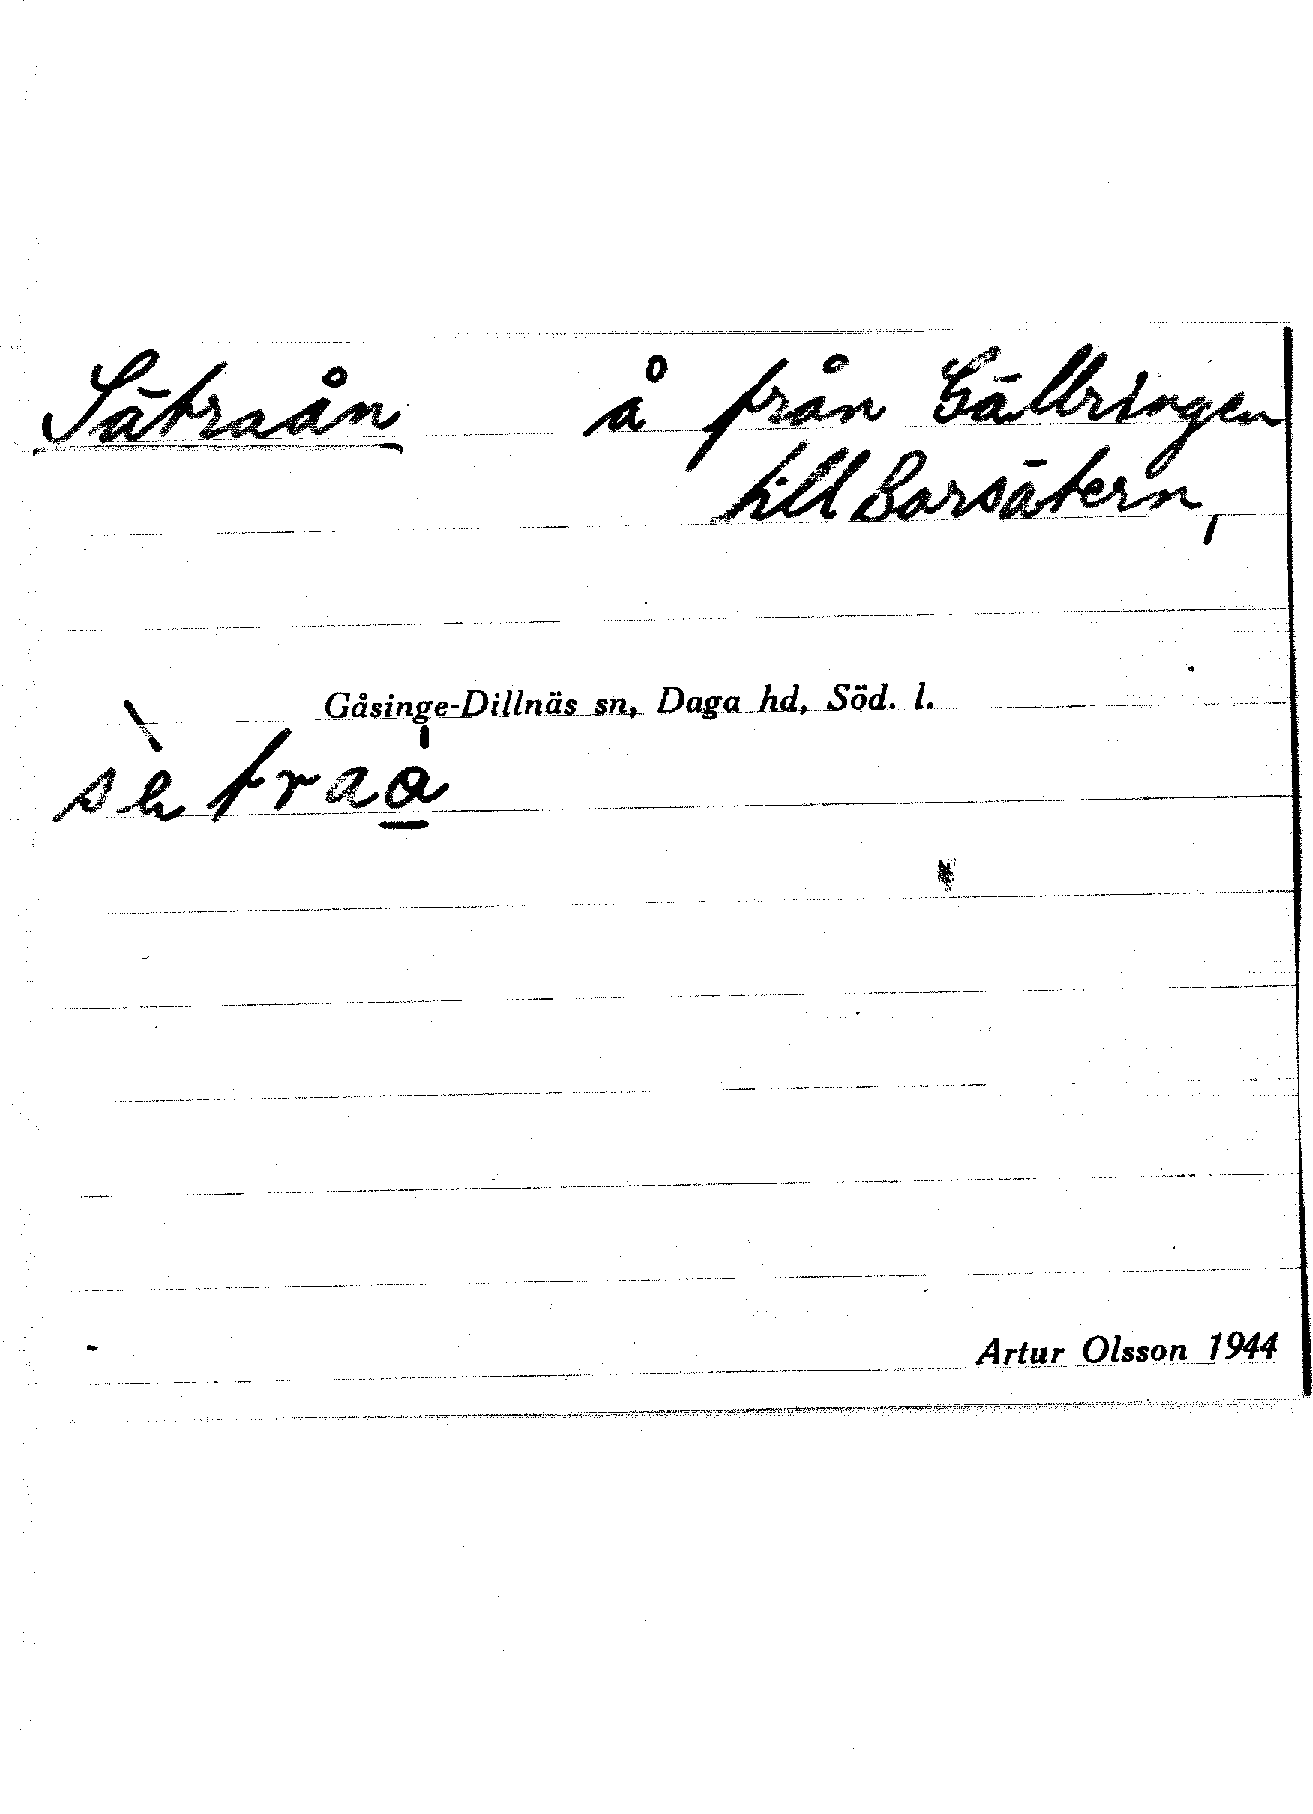 Sätraån å från Gällringen
till Barsätern,
Gåsinge-Dillnäs sn, Daga hd, Söd. l.
Artur Olsson 1944